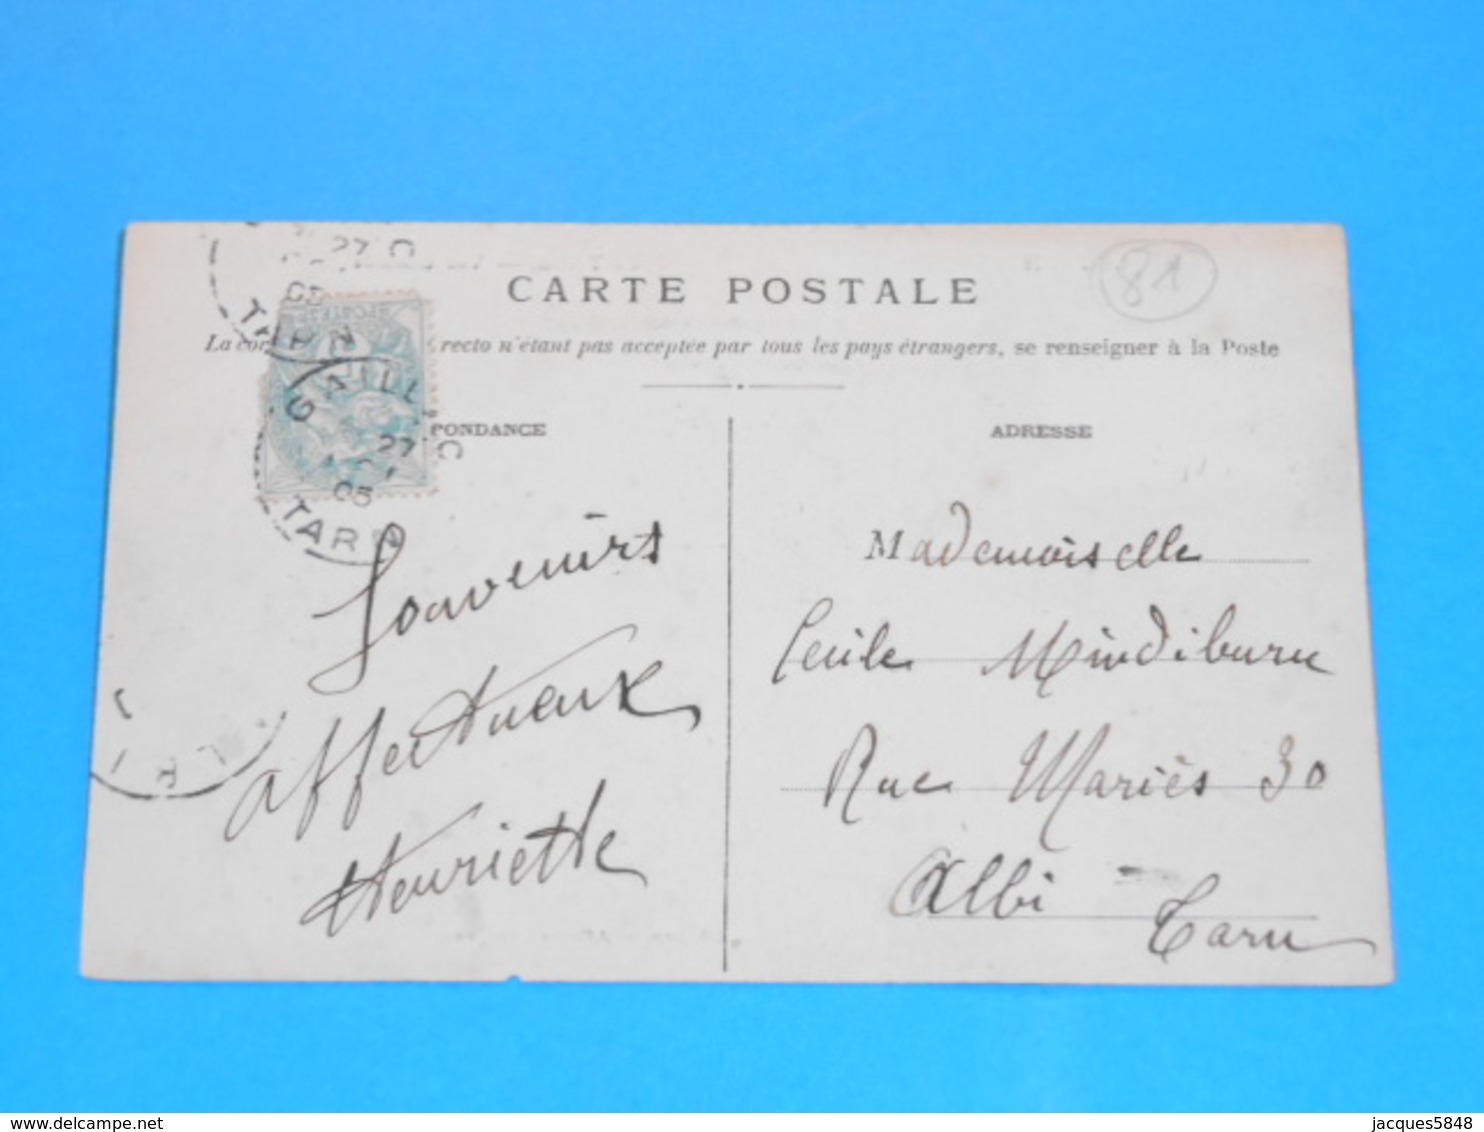 CARTE POSTALE
81
La cor recto n'étant pas acceptée par tous les pays étrangers, se renseigner à la Poste
PONDANCE
ADRESSE
TARN
GAILLAC
27
05
TARN
Souvenirs
affectueux
Henriette
Mademoiselle
Cécile Mindiburu
Rue Mariès 30
Albi
Tarn
www.delcampe.net
jacques5848